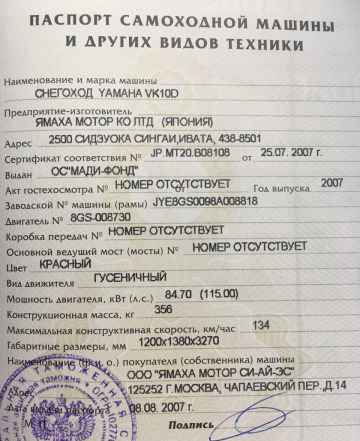 ПАСПОРТ САМОХОДНОЙ МАШИНЫ
И ДРУГИХ ВИДОВ ТЕХНИКИ
Наименование и марка машины
СНЕГОХОД YAMAHA VK10D
Предприятие-изготовитель
ЯМАХА МОТОР КО ЛТД (ЯПОНИЯ)
Адрес 2500 СИДЗУОКА СИНГАИ,ИВАТА, 438-8501
Сертификат соответствия № JP.MT20.B08108 от 25.07. 2007 г.
Выдан ОС"МАДИ-ФОНД"
Акт гостехосмотра № НОМЕР ОТСУТСТВУЕТ Год выпуска 2007
Заводской № машины (рамы) JYE8GS0098A008818
Двигатель № 8GS-008730
Коробка передач № НОМЕР ОТСУТСТВУЕТ
Основной ведущий мост (мосты) № НОМЕР ОТСУТСТВУЕТ
Цвет КРАСНЫЙ
Вид движителя ГУСЕНИЧНЫЙ
Мощность двигателя, кВт (л.с.) 84.70 (115.00)
Конструкционная масса, кг 356
Максимальная конструктивная скорость, км/час 134
Габаритные размеры, мм 1200х1380х3270
Наименование (ф.и.о.) покупателя (собственника) машины
ООО "ЯМАХА МОТОР СИ-АЙ-ЭС"
Адрес 125252 Г.МОСКВА, ЧАПАЕВСКИЙ ПЕР.,Д.14
Дата выдачи паспорта 08.08. 2007 г.
М.П. Подпись